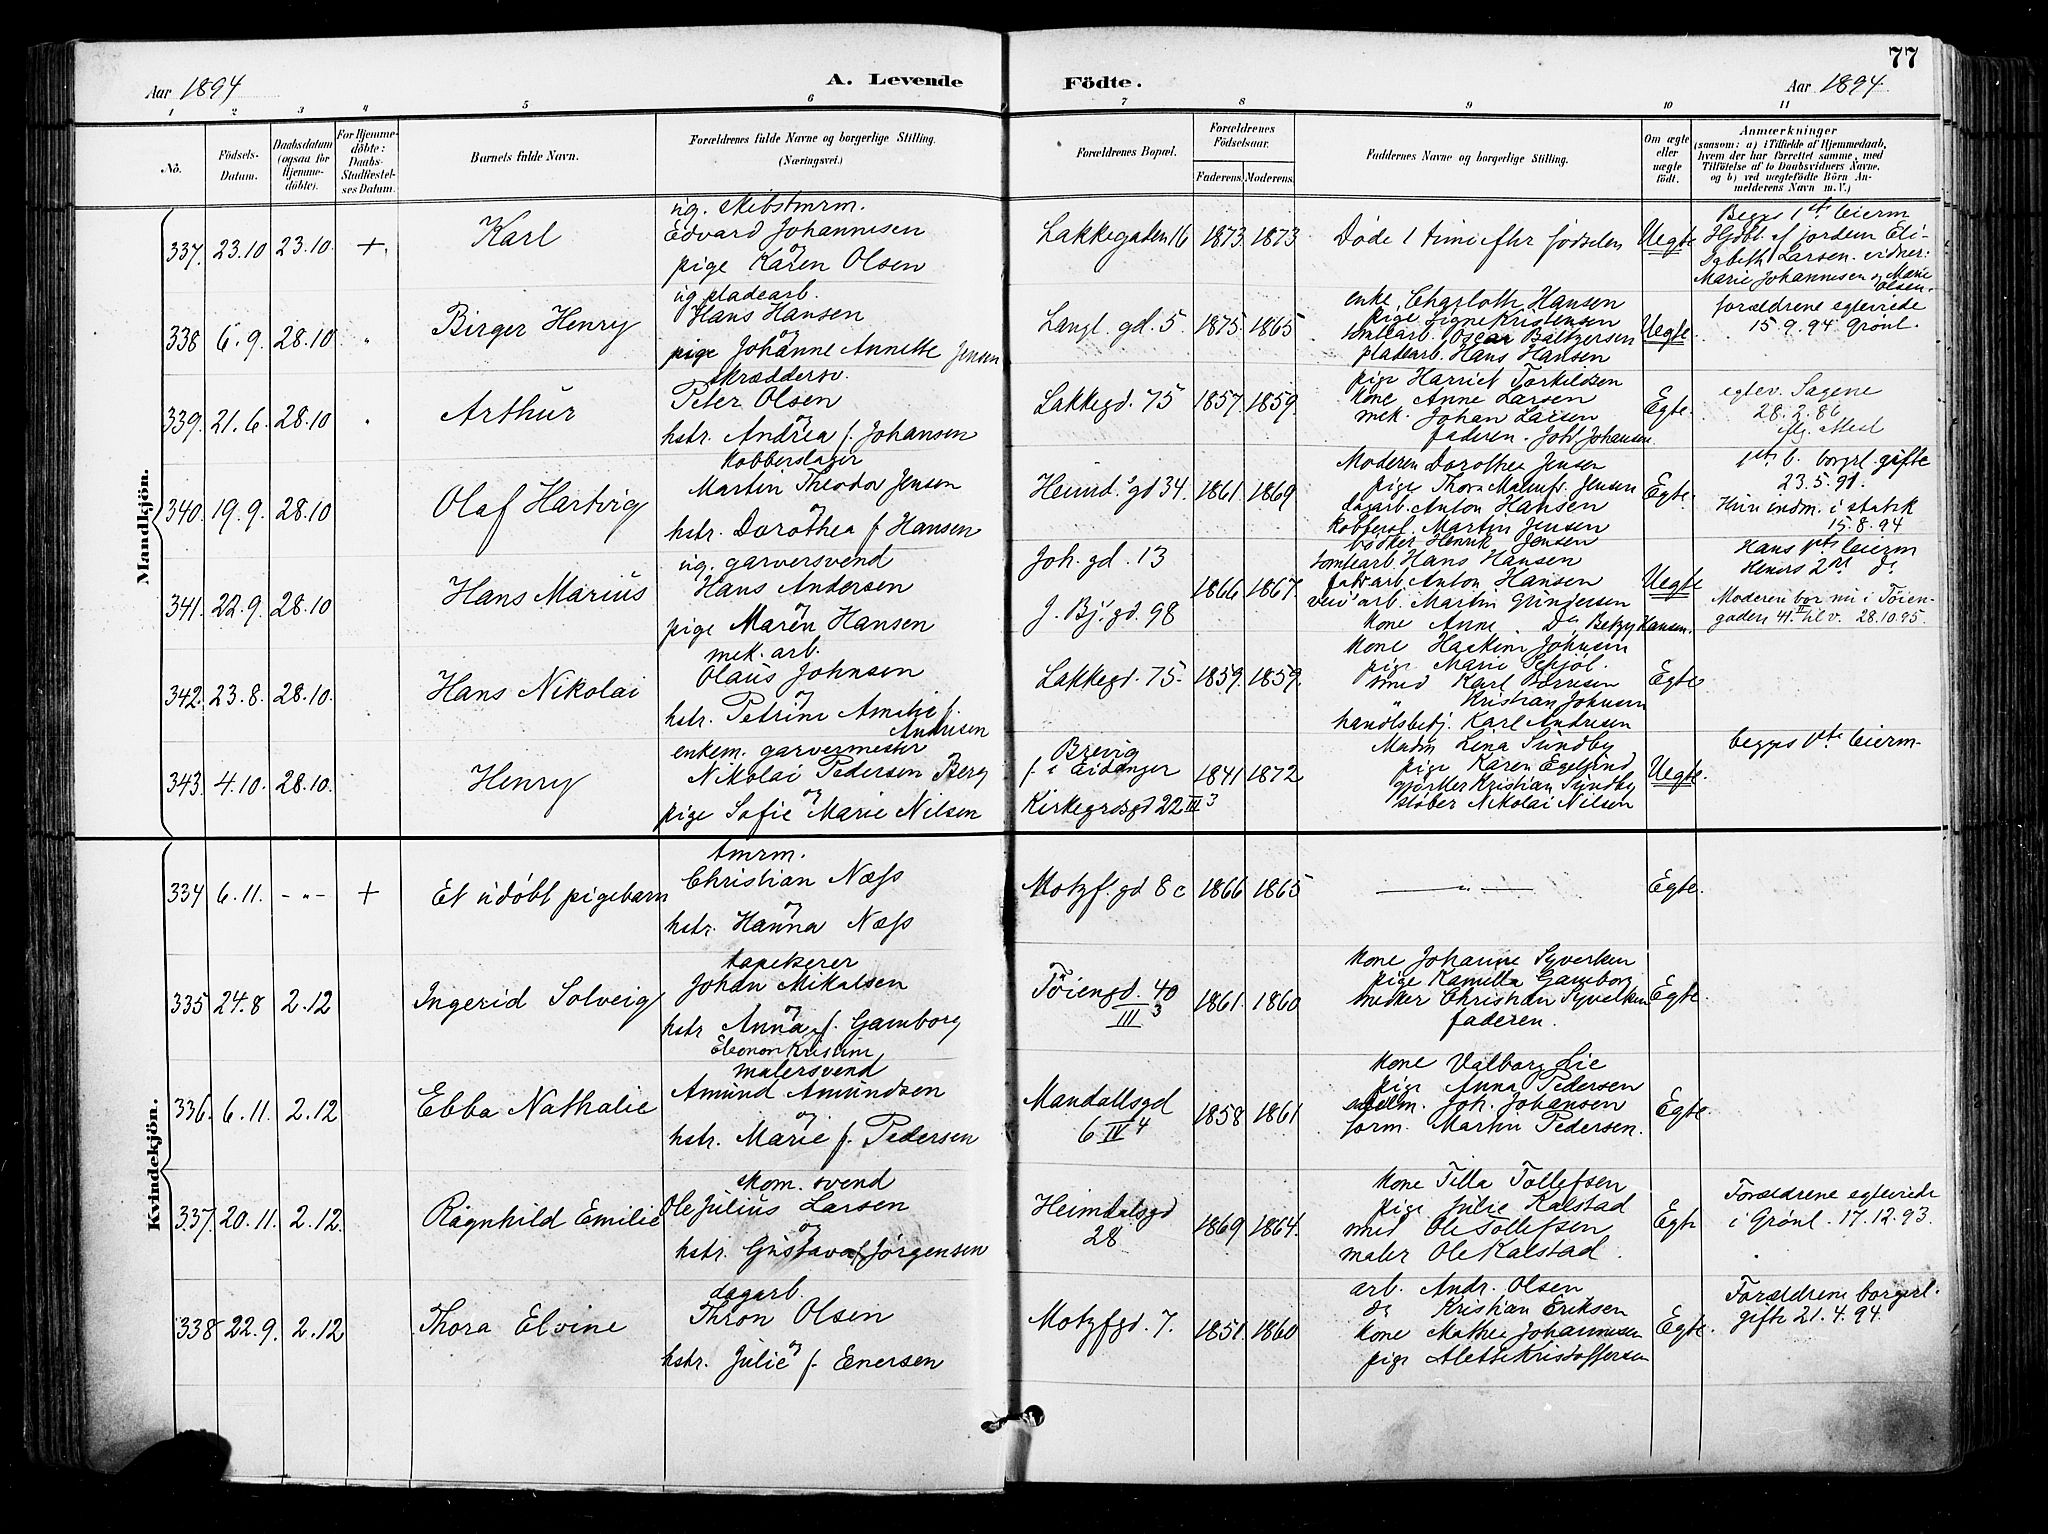 77
Aar 1894
A. Levende
Födte.
Aar 1894.
1 2 3 4 5 6 7 8 9 10 11
No.
Födsels-Datum.
Daabsdatum (ogsaa for Hjemme-döbte).
For Hjemme-döbte: Daabs-Stadfæstel-ses Datum.
Barnets fulde Navn.
Forældrenes fulde Navne og borgerlige Stilling.
(Næringsvei.)
Forældrenes Bopæl.
Forældrenes Födselsaar.
Faderens. Moderens.
Faddernes Navne og borgerlige Stilling.
Om ægte eller uægte födt.
Anmærkninger
(saasom: a) i Tilfælde af Hjemmedaab,
hvem der har forrettet samme, med
Tilföielse af to Daabsvidners Navne,
og b) ved uegtefödte Börn An-
melderens Navn m. V.)
Mandkjön.
337. 23.10 23.10 + Karl
ug.
Edvard Johannesen
og
pige Karen Olsen
Lakkegaden 16 1873. 1873
Døde 1 time efter fødselen
Uegte
Begges 1ste leierm
Hjdbt. af jordem Eli-
sabeth Larsen. vidner:
Marie Johannesen og Marie
Olsen.
338 6.9. 28.10 " Birger Henry
ug pladearb.
Hans Hansen
og
pige Johanne Annette Jensen
Langl. gd. 5. 1875. 1865
enke Charloth Hansen
pige Signe Kristensen
Oscar Baltzersen
pladearb. Hans Hansen
Uegte.
forældrene egteviede
15.9.94 Grönl.
339. 21.6. 28.10 " Arthur
skræddersv.
Peter Olsen
og
hstr. Andrea f. Johansen
Lakkegd. 75 1857. 1859.
pige Harriet Torkildsen
kone Anne Larsen
mek. Johan Larsen
faderen. Johs Johansen
Egte.
egtev. Sagene
28.2.86
340. 19.9. 28.10 Olaf Hartvig
Kobberslager
Martin Theodor Jensen
og
hstr. Dorothea f Hansen
Heimd.'gd 34. 1861 1869
Moderen Dorothea Jensen
pige Thora Jensen
dagarb. Anton Hansen
Martin Jensen
bødker Henrik Jensen
Egte.
borgrl. gifte
23.5.91.
Hun indm. i statsk
15.8.94
341. 22.9. 28.10 Hans Marius
ug. garversvend
Hans Andersen
og
pige Maren Hansen
Joh. gd. 13
J. Bj. gd. 98
1866 1867.
tomtearb. Hans Hansen
Anton Hansen
arb. Martin Gundersen
kone Anne Do Betzy Hansen.
Uegte
Hans 1ste leierm
Hendes 2det do
Moderen bor nu i Töien-
gaden 41. II til v. 28.10.95.
342. 23.8. 28.10. Hans Nikolai
mek. arb.
Olaus Johnsen
og
hstr. Petrine Amalie f.
Andresen
Lakkegd. 75. 1859. 1859.
kone Johnsen
pige Marie
smed Karl Borresen
" Kristian Johnsen
handlsbetj. Karl Andresen
Egte
343. 4.10. 28.10. Henry
enkem. garvermester
Nikolai Pedersen Berg
og
pige Sofie Marie Nilsen
Brevig
f. i Eidanger
Kirkegrdsgd 22 III 3
1841 1872
Madm Lina Sundby
pige Karen
Kristian Sundby
støber Nikolai Nilsen
Uegte.
begges 1ste leierm.
Kvindekjön.
334 6.11. -"- + Et udöbt pigebarn
tmrm.
Christian Næss
og
hstr. Hanna Næss
Motzf. gd 8 c 1866 1865
— " —
Egte.
335 24.8 2.12 Ingerid Solveig
tapetserer
Johan Mikalsen
og
hstr Anna f. Gamborg
Eleonor Kristine
Töiengd. 40
III 3
1861. 1860
kone Johanne
pige Kamilla Gamborg
Christian
faderen.
Egte.
336. 6.11. 2.12. Ebba Nathalie
malersvend
Amund Amundsen
og
hstr. Marie f. Pedersen
Mandallsgd
6 IV 4
1858. 1861.
kone Valborg Lie
pige Anna Pedersen
Joh. Johansen
form. Martin Pedersen.
Egte.
337. 20.11. 2.12. Ragnhild Emilie
skom. svend
Ole Julius Larsen
og
hstr. Gustava f Jörgensen
Heimdalsgd
28
1869 1864.
kone Tilla Tollefsen
pige Julie Kalstad
smed Ole Tollefsen
maler Ole Kalstad.
Egte
Forældrene egteviede
i Grönl. 17.12.93.
338 22.9. 2.12 Thora Elvine
dagarb.
Thron Olsen
og
hstr. Julie f. Enersen
Motzfgd. 7. 1851. 1860
arb. Andr. Olsen
do Kristian Eriksen
kone Mathea Johannesen
pige Alette Kristoffersen
Egte.
Forældrene borgerl.
gifte 21.4.94.